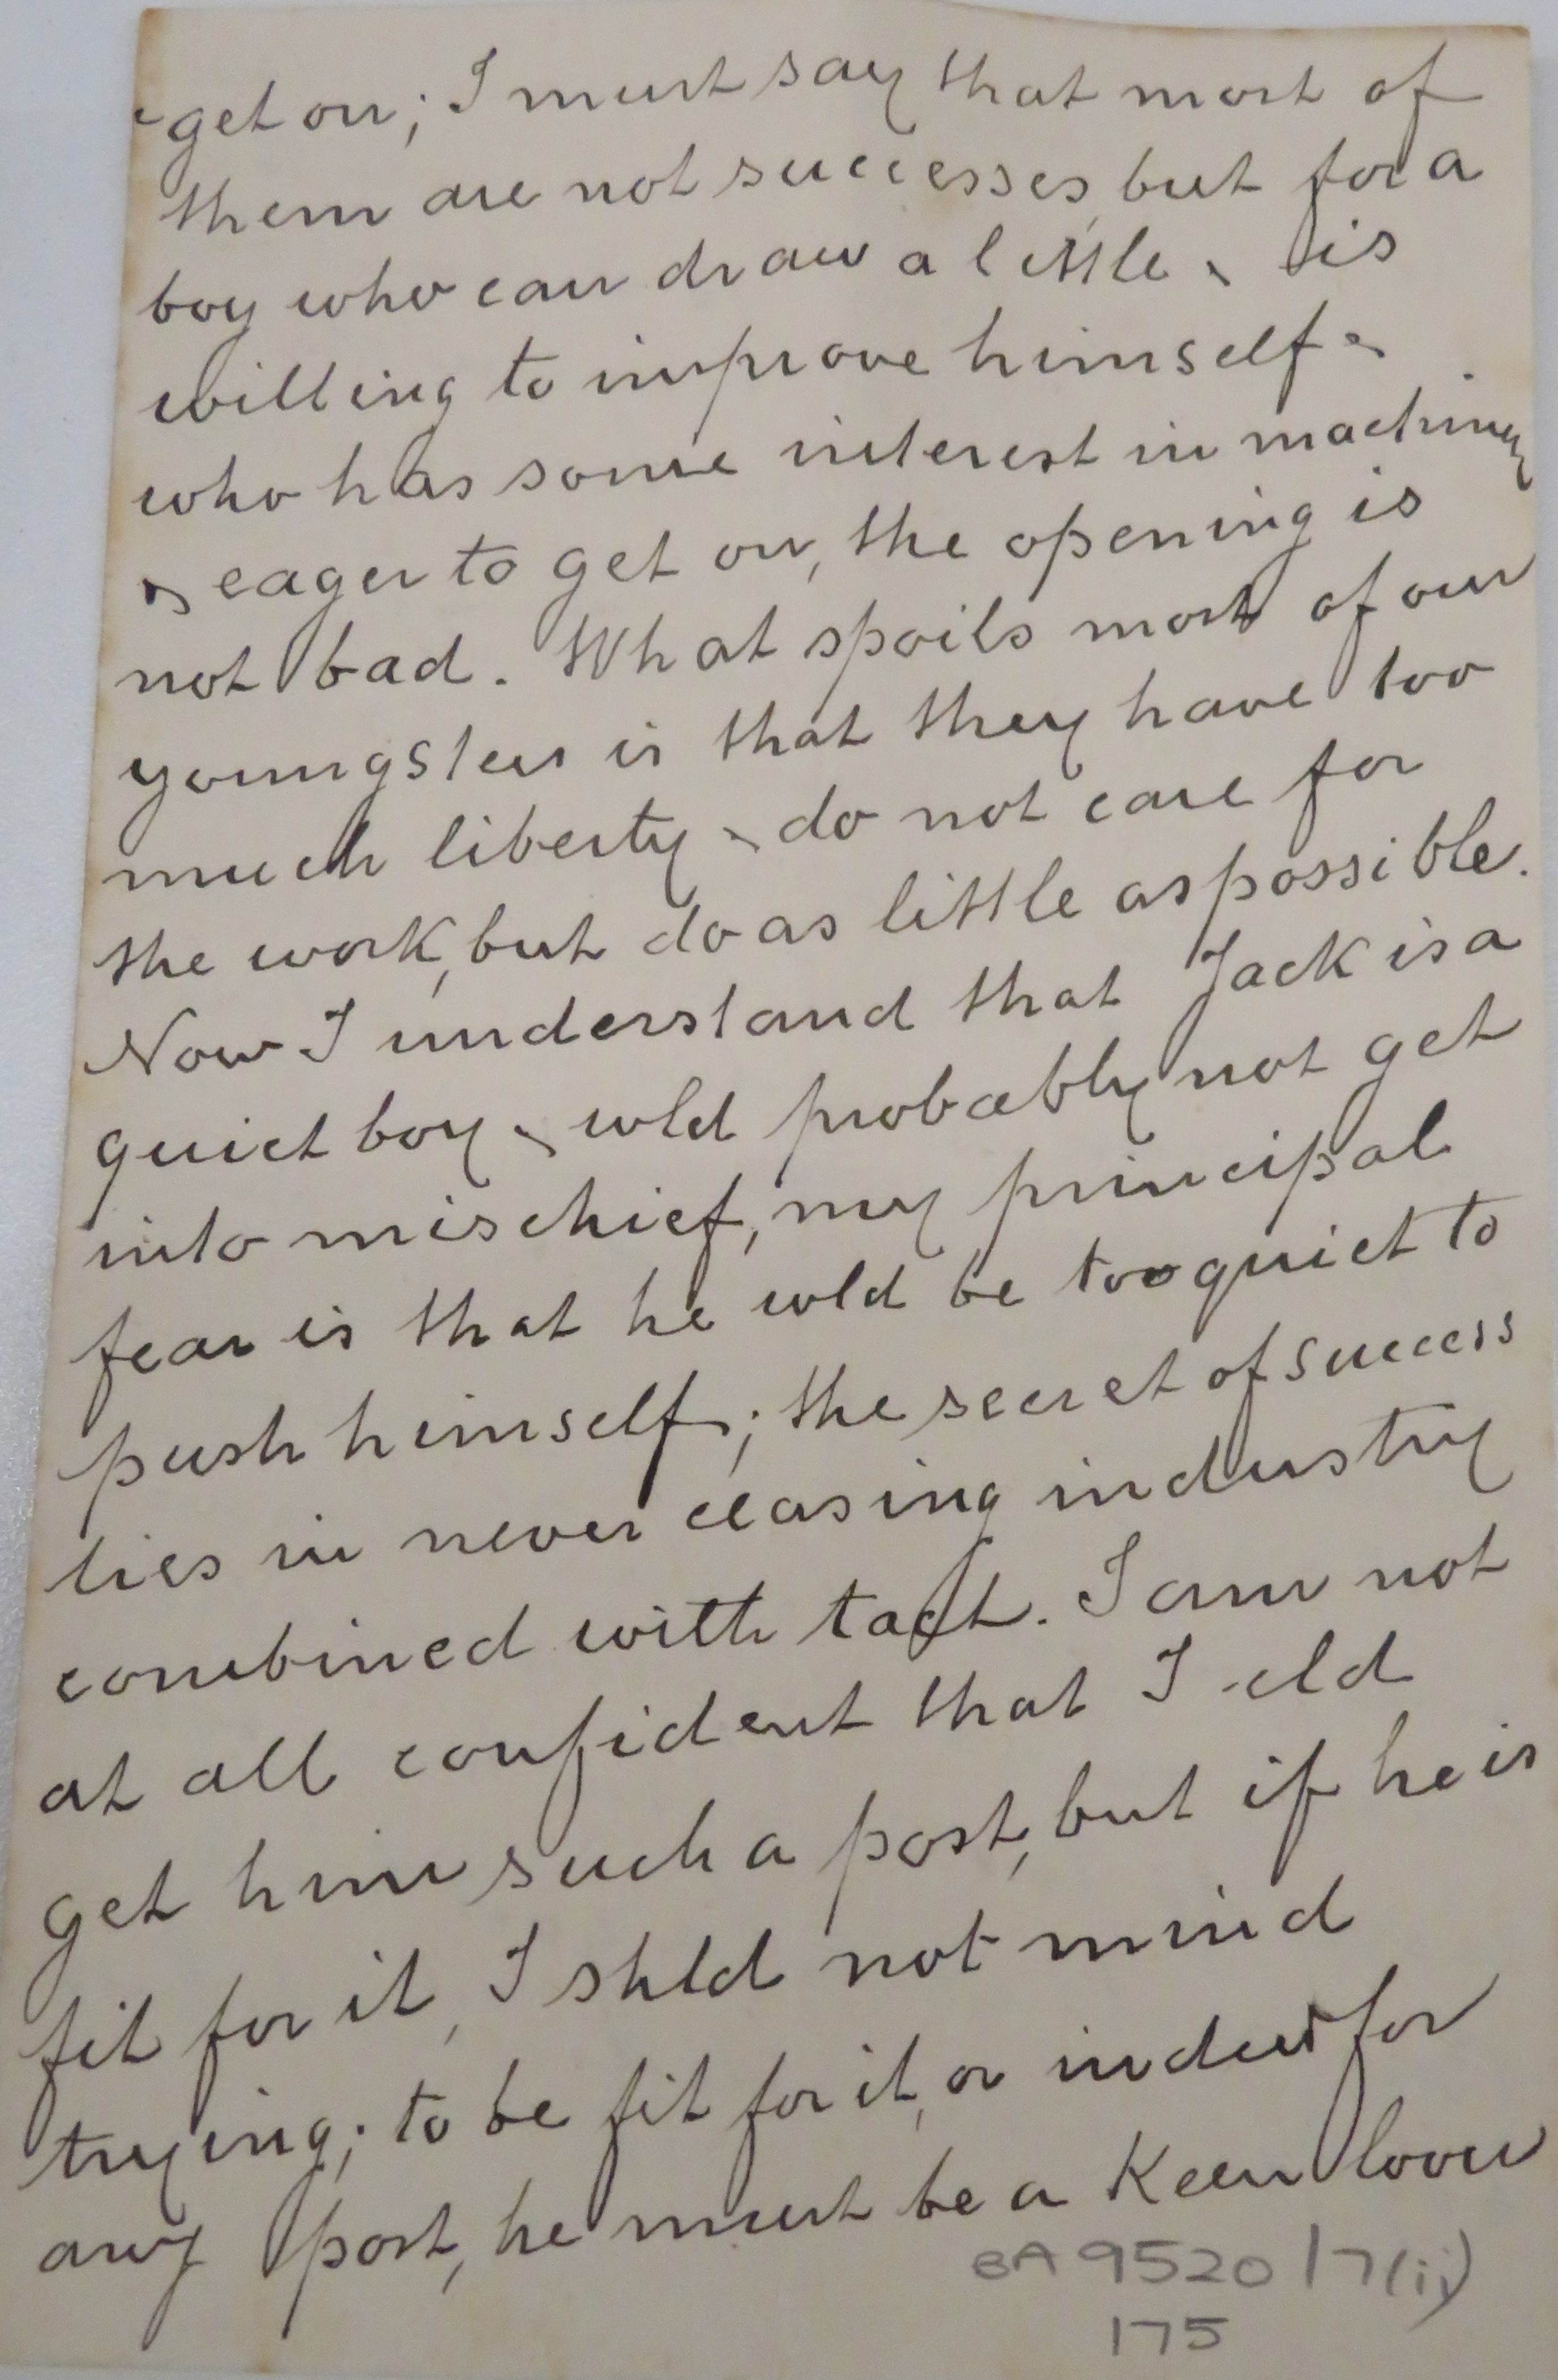 & get on; I must say that most of
them are not successes, but for a
boy who can draw a little & is
willing to improve himself &
who has some interest in machinery
& eager to get on, the opening is
not bad. What spoils most of our
youngsters is that they have too
much liberty & do not care for
the work, but do as little as possible.
Now I understand that Jack is a
quiet boy & wld probably not get
into mischief, my principal
fear is that he wld be too quiet to
push himself; the secret of success
lies in never ceasing industry
combined with tact. I am not
at all confident that I cld
get him such a post, but if he is
fit for it, I shld not mind
trying; to be fit for it, or indeed for
any post, he must be a keen lover
BA 9520/7(ii)
175